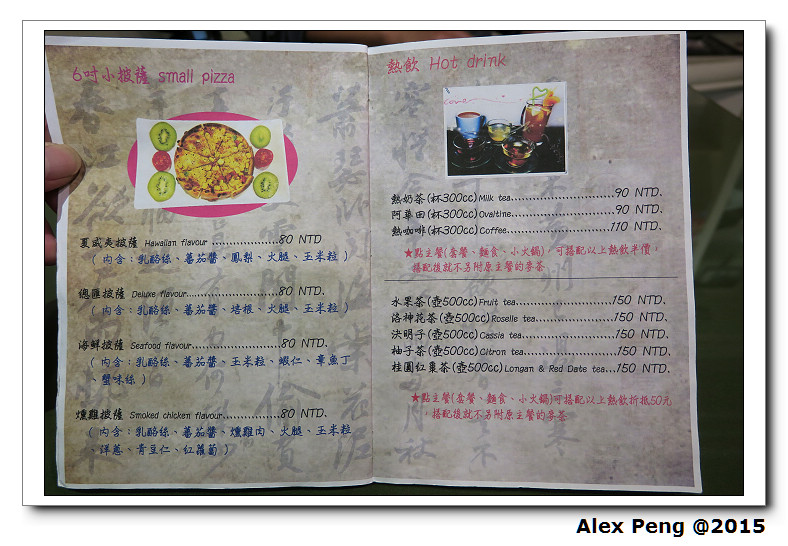 6吋小披薩 small pizza
夏威夷披薩 Hawaiian flavour ..................80 NTD
( 內含：乳酪絲、蕃茄醬、鳳梨、火腿、玉米粒 )
總匯披薩 Deluxe flavour........................80 NTD.
( 內含：乳酪絲、蕃茄醬、培根、火腿、玉米粒 )
海鮮披薩 Seafood flavour.......................80 NTD.
( 內含：乳酪絲、蕃茄醬、玉米粒、蝦仁、章魚丁
、蟹味絲 )
燻雞披薩 Smoked chicken flavour...............80 NTD.
( 內含：乳酪絲、蕃茄醬、燻雞肉、火腿、玉米粒
、洋蔥、青豆仁、紅蘿蔔 )
熱飲 Hot drink
Love
熱奶茶(杯300cc)Milk tea..........................90 NTD.
阿華田(杯300cc)Ovaltine..........................90 NTD.
熱咖啡(杯300cc)Coffee..........................110 NTD.
★點主餐(套餐、麵食、小火鍋)，可搭配以上熱飲半價，
搭配後就不另附原主餐的麥茶
水果茶(壺500cc)Fruit tea........................150 NTD.
洛神花茶(壺500cc)Roselle tea...................150 NTD.
決明子(壺500cc)Cassia tea......................150 NTD.
柚子茶(壺500cc)Citron tea......................150 NTD.
桂圓紅棗茶(壺500cc)Longan & Red Date tea...150 NTD.
★點主餐(套餐、麵食、小火鍋)可搭配以上熱飲折抵50元，
搭配後就不另附原主餐的麥茶
Alex Peng @2015